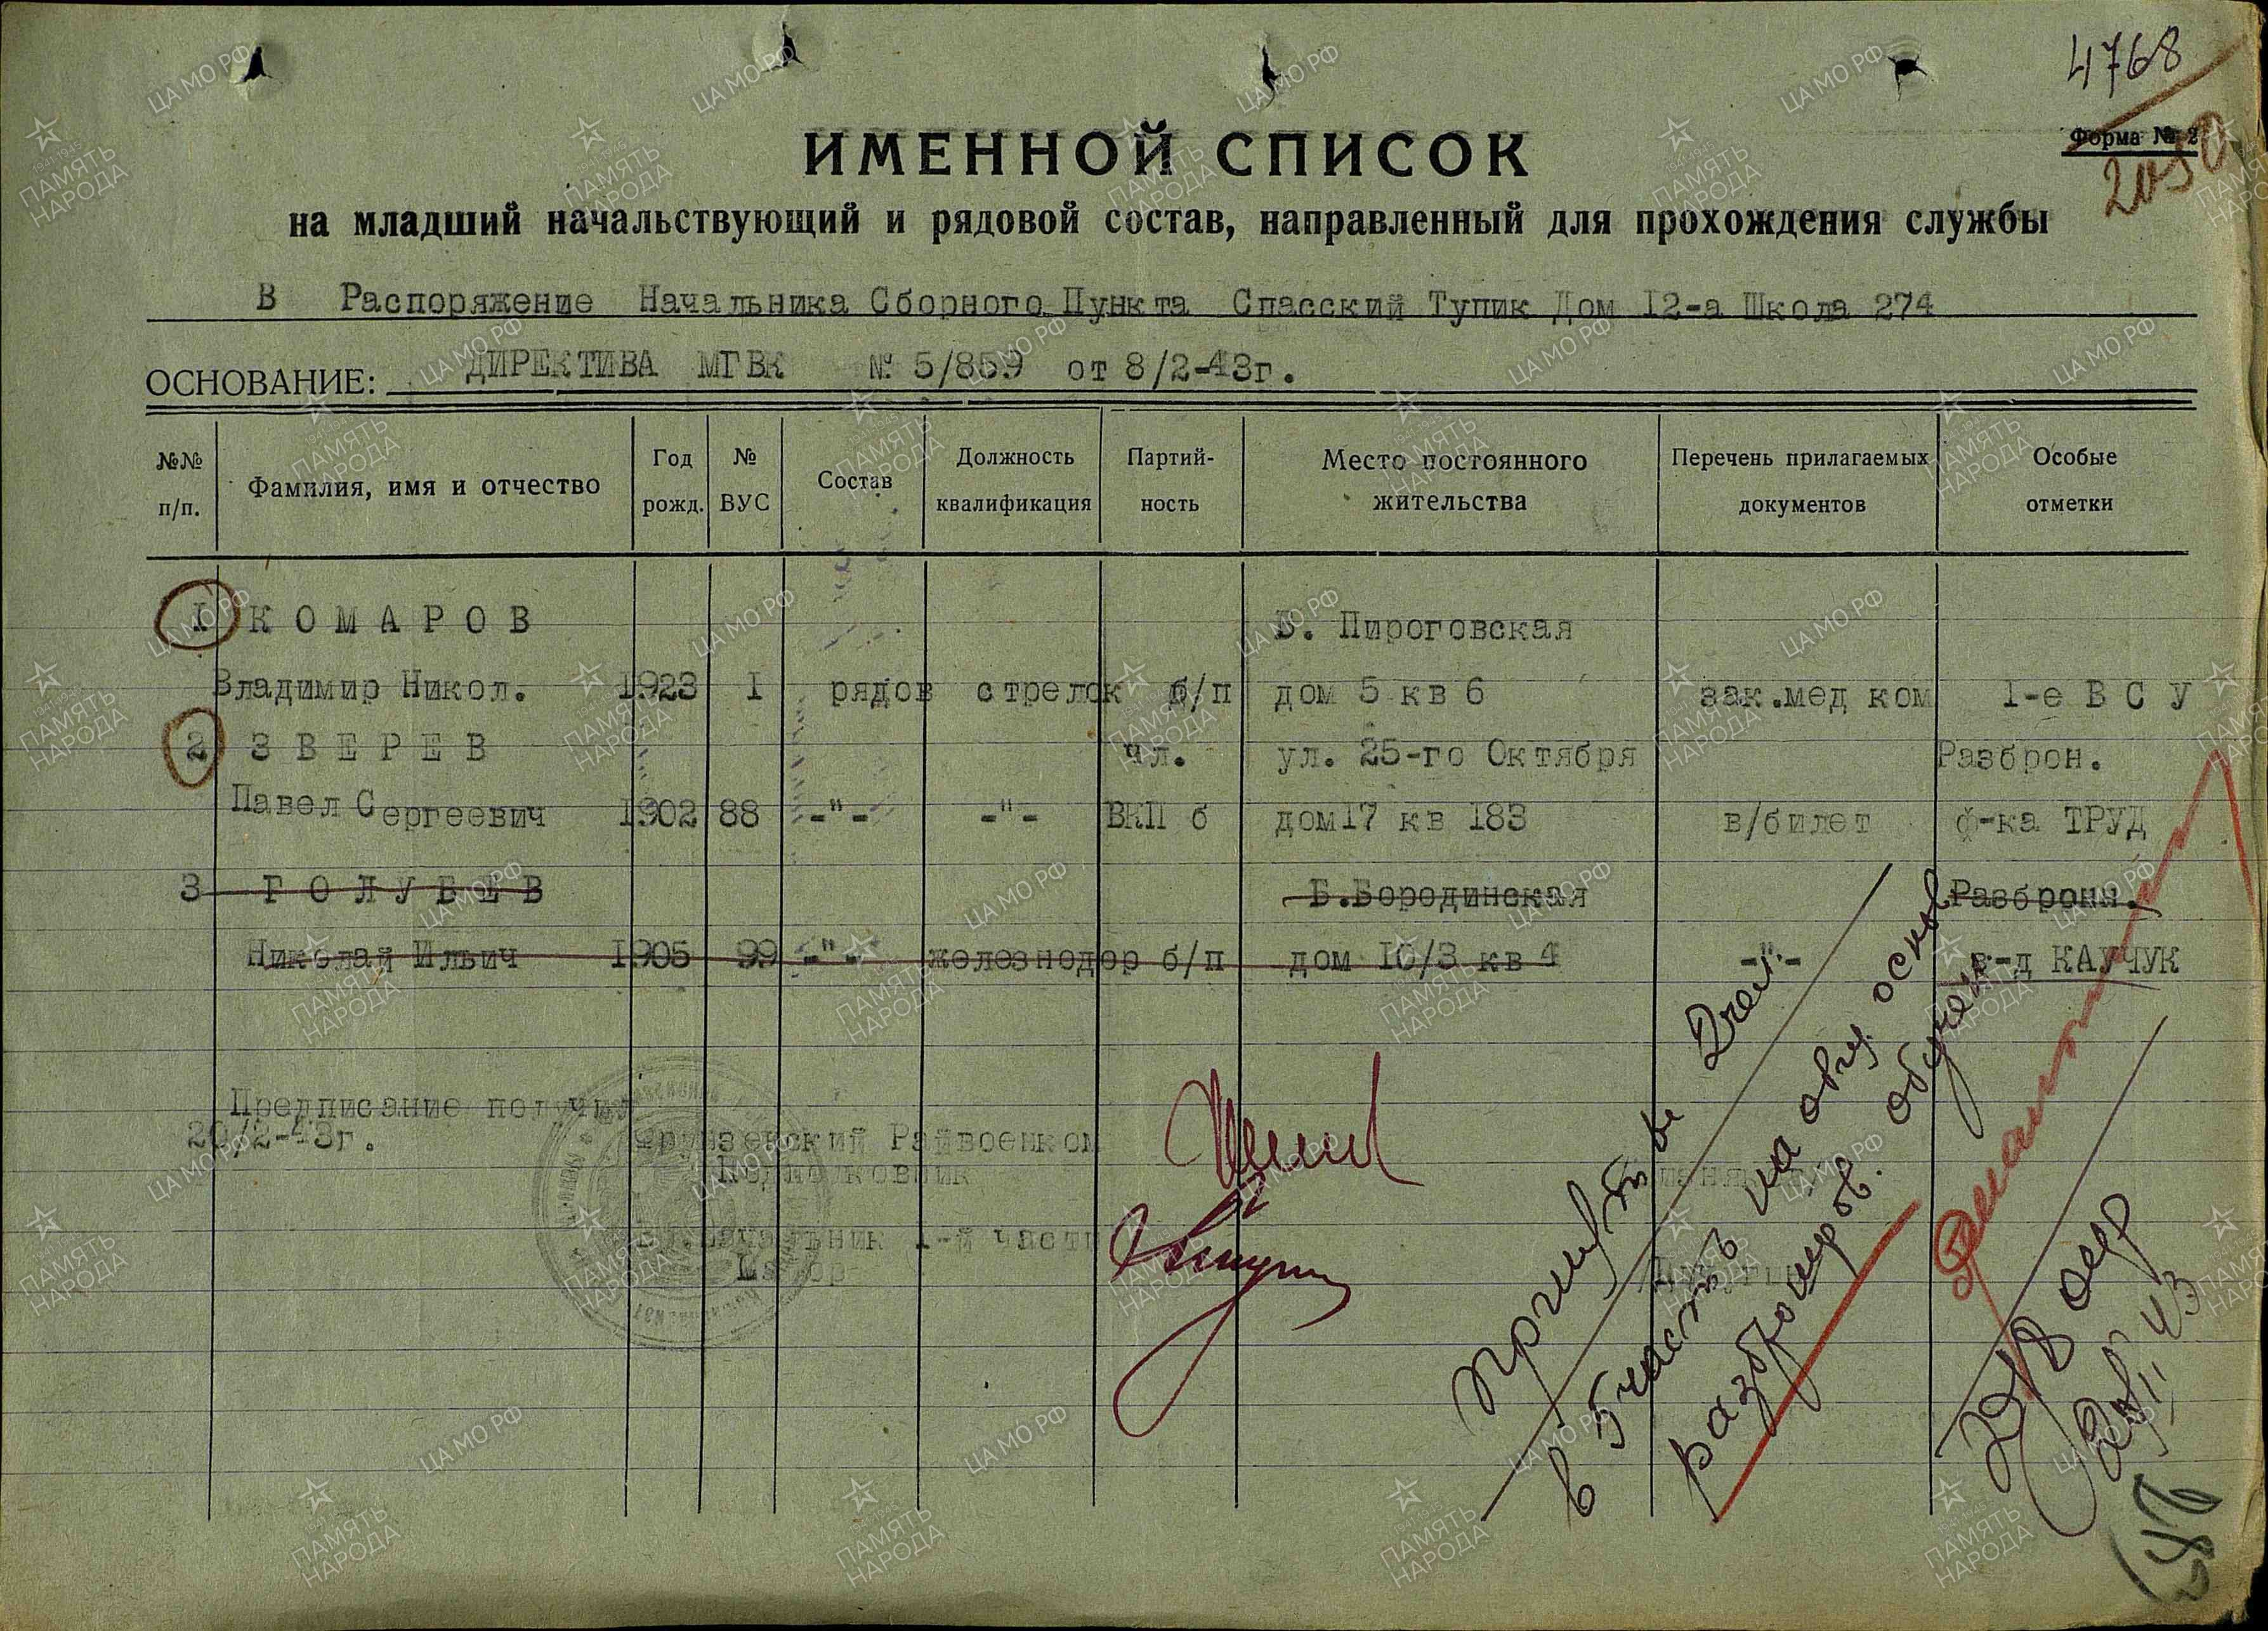 4768
Форма № 2
2050
ИМЕННОЙ СПИСОК
на младший начальствующий и рядовой состав, направленный для прохождения службы
В Распоряжение Начальника Сборного Пункта Спасский Тупик Дом 12-а Школа 274
ОСНОВАНИЕ: ДИРЕКТИВА МГВК № 5/859 от 8/2-43г.
№№ п/п. Фамилия, имя и отчество Год рожд. № ВУС Состав Должность квалификация Партий-ность Место постоянного жительства Перечень прилагаемых документов Особые отметки
1 КОМАРОВ Б. Пироговская
Владимир Никол. 1923 1 рядов стрелок б/п дом 5 кв 6 зак.мед ком 1-е ВСУ
2 ЗВЕРЕВ чл. ул. 25-го Октября Разброн.
Павел Сергеевич 1902 88 -"- -"- ВКП б дом17 кв 183 в/билет ф-ка ТРУД
3 ГОЛУБЕВ Б.Бородинская Разбронн.
Николай Ильич 1905 99 -"- железнодор б/п дом 10/3 кв 4 -"- з-д КАУЧУК
Предписание получил
20/2-43г.
Фрунзенский Райвоенком
Подполковник
Начальник 1-й части
Майор
2 чел.
в 5 часть
разброниров.
ЦАМО РФ
1941-1945
ПАМЯТЬ
НАРОДА